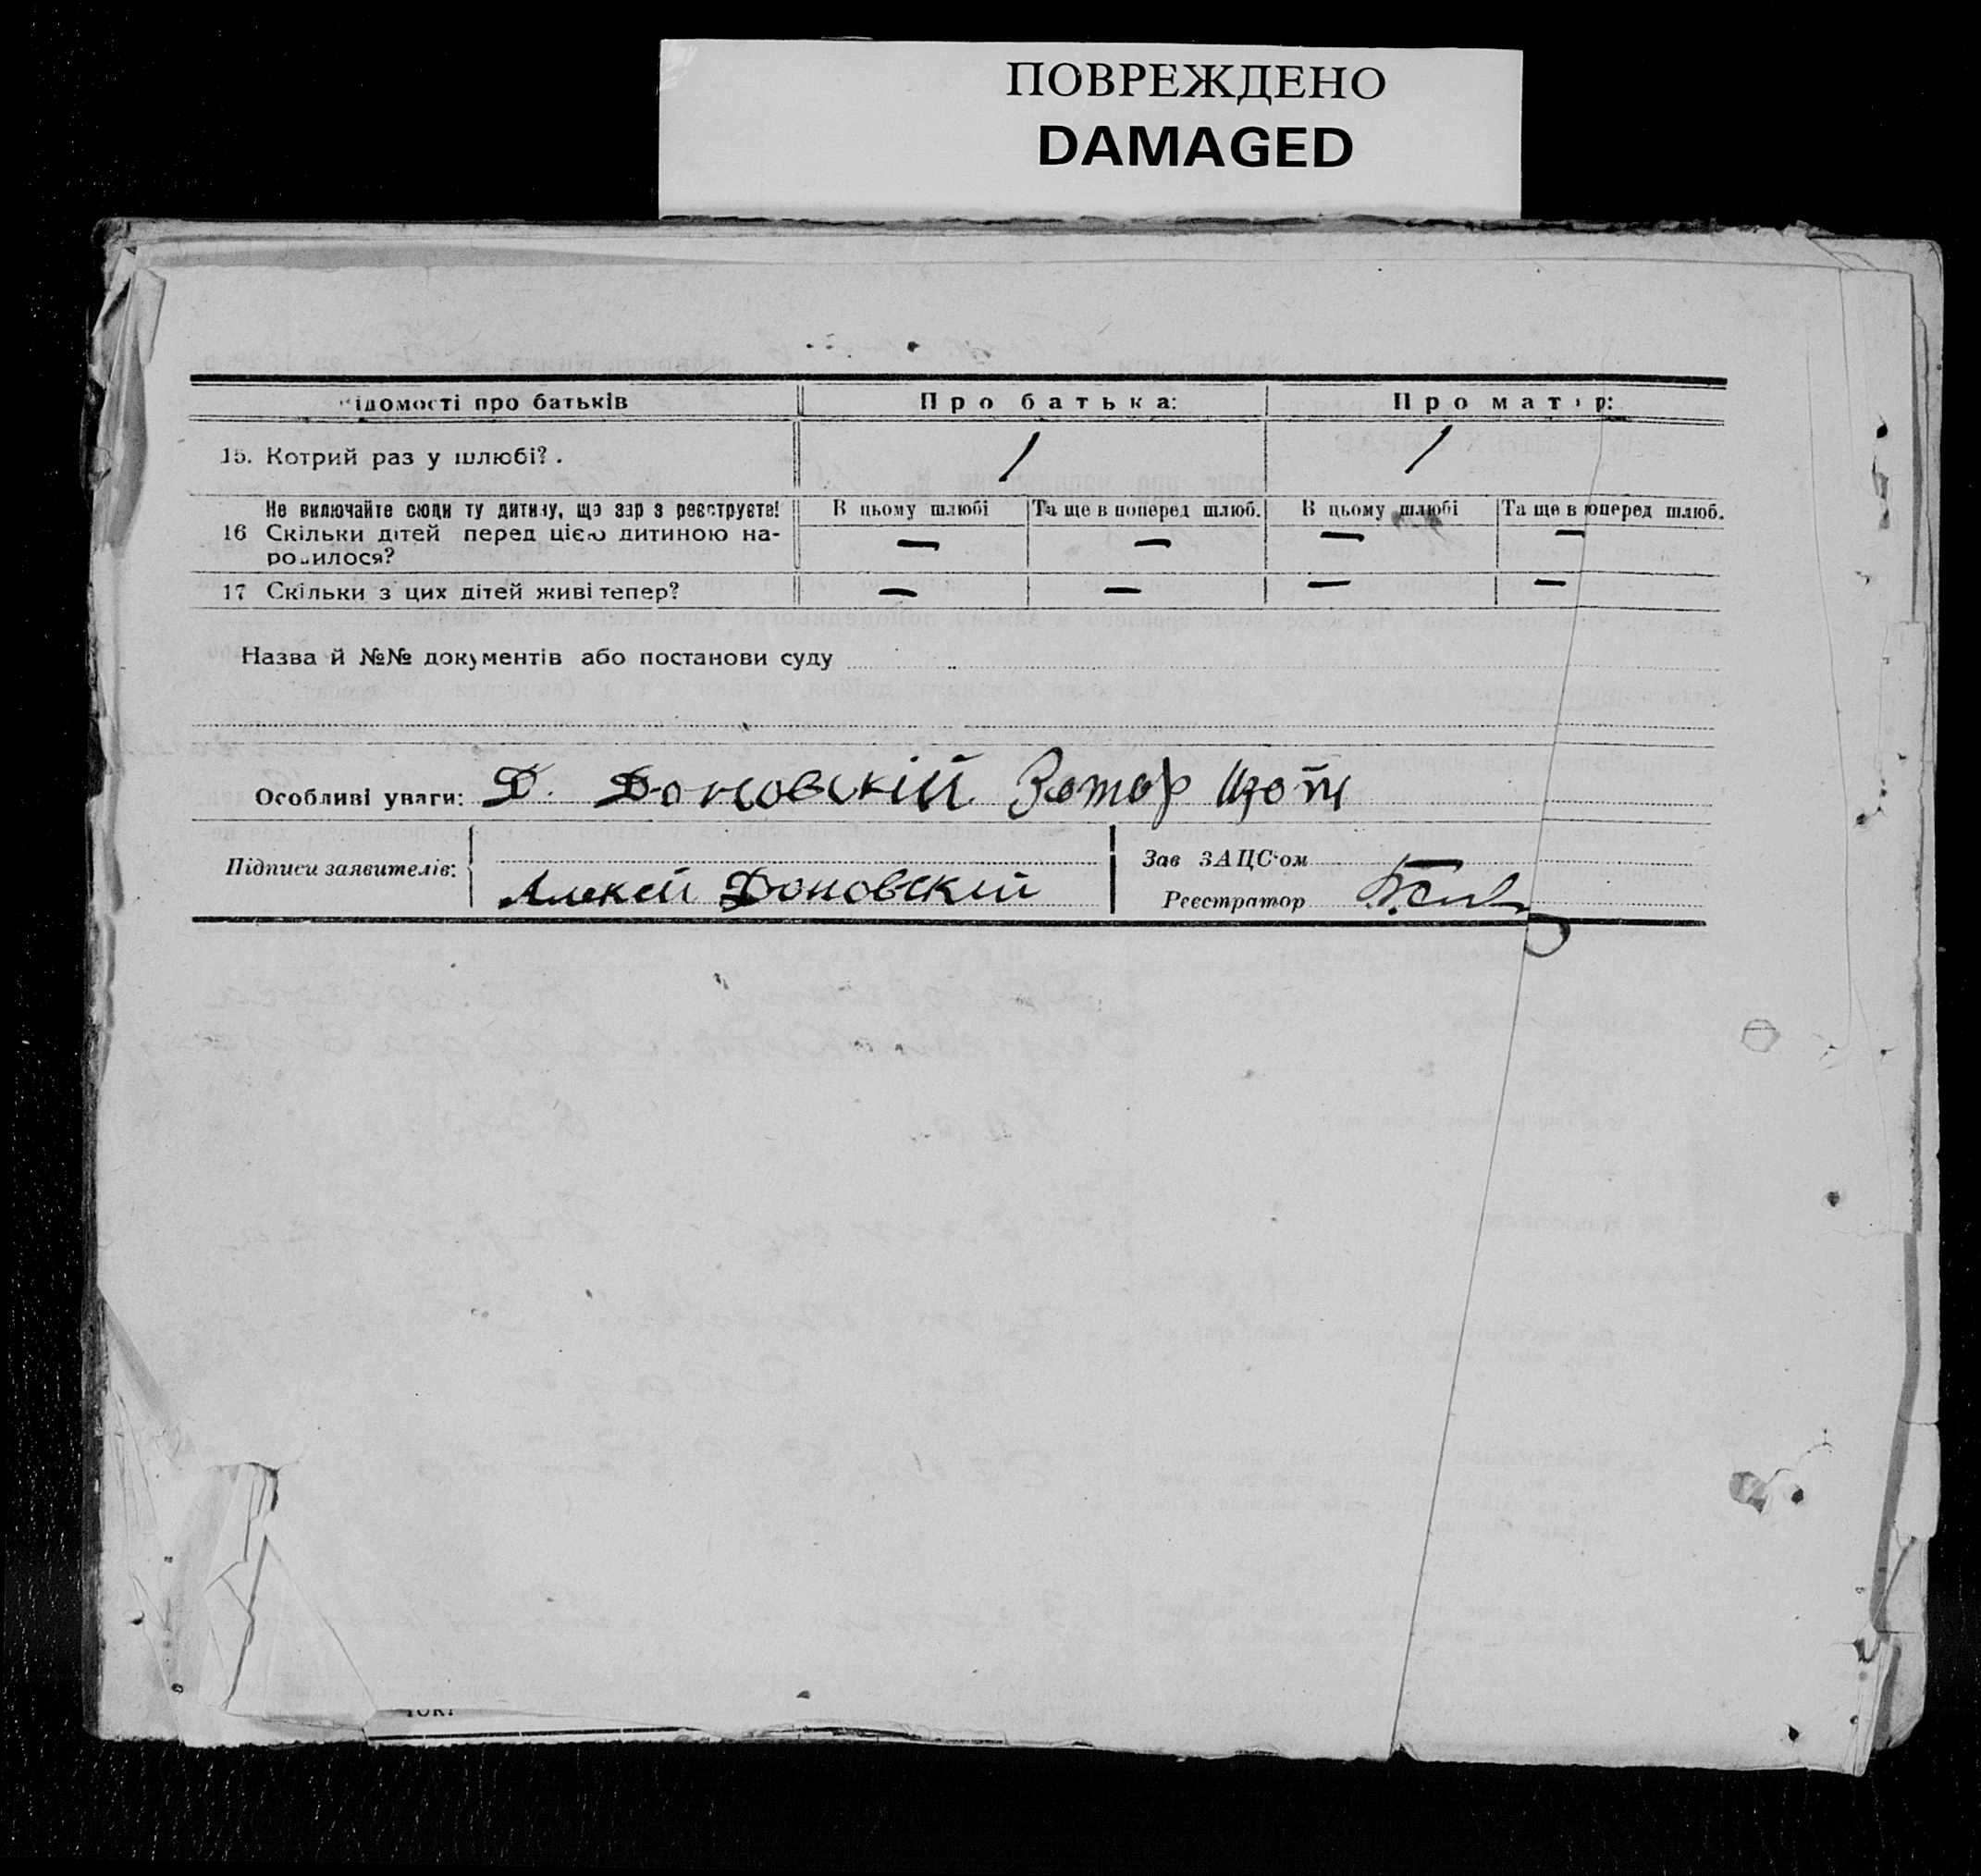 ПОВРЕЖДЕНО
DAMAGED
ідомості про батьків Про батька: Про матір:
15. Котрий раз у шлюбі?. 1 1
Не включайте сюди ту дитину, що зараз реєструєте! В цьому шлюбі Та ще в поперед шлюб. В цьому шлюбі Та ще в поперед шлюб.
16 Скільки дітей перед цією дитиною на- — — — —
родилося?
17 Скільки з цих дітей живі тепер? — — — —
Назва й №№ документів або постанови суду
Особливі уваги: Д. Доновскій
Підписи заявителів: Зав ЗАЦС'ом —
Алексій Доновскій Реєстратор